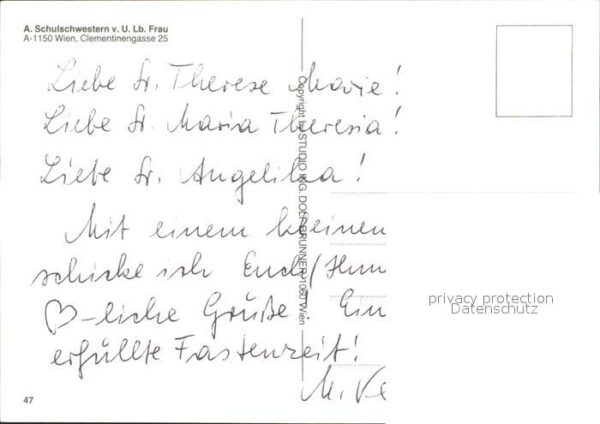 A. Schulschwestern v. U. Lb. Frau
A-1150 Wien, Clementinengasse 25
Liebe Sr. Therese Marie!
Liebe Sr. Maria Theresia!
Liebe Sr. Angelika!
Mit einem kleinen
schicke ich Euch/
♡-liche Grüße. Ein
erfüllte Fastenzeit!
M.
Copyright by STUDIO ING. DOLF BRUNNER, 1060 Wien
privacy protection
Datenschutz
47